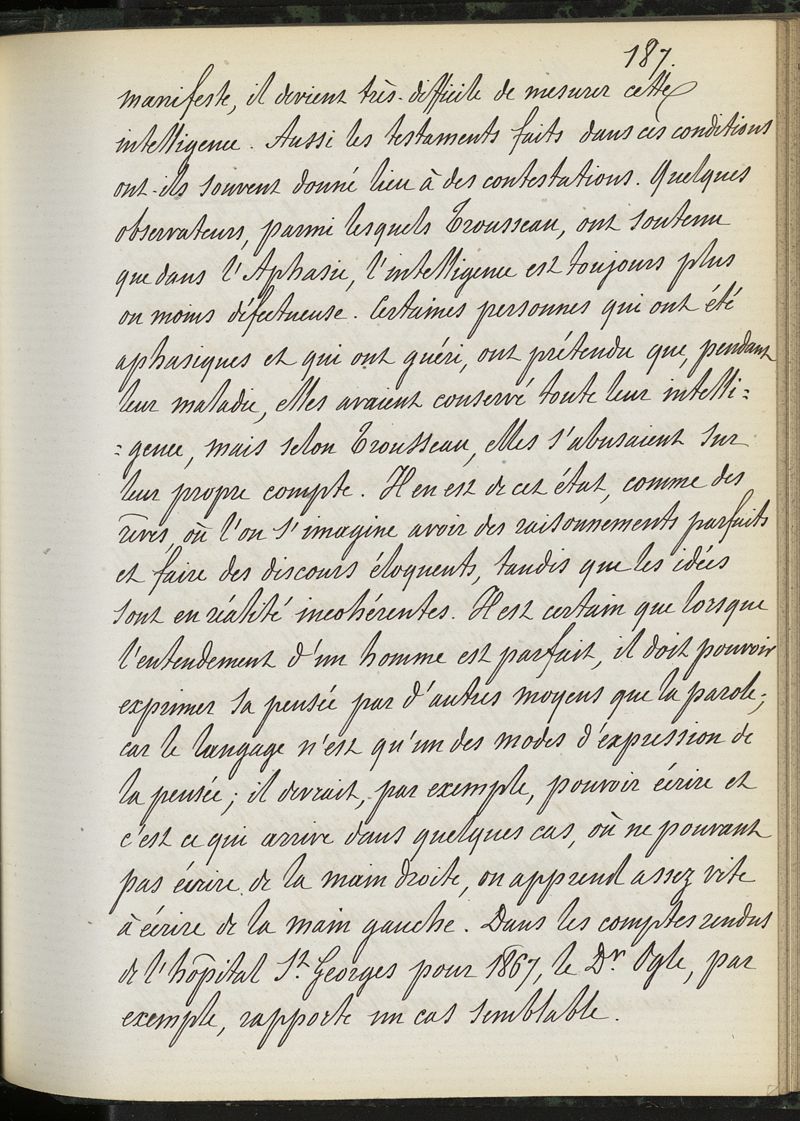 187.
manifeste, il devient très-difficile de mesurer cette
intelligence. Aussi les testaments faits dans ces conditions
ont-ils souvent donné lieu à des contestations. Quelques
observateurs, parmi lesquels Trousseau, ont soutenu
que dans l'Aphasie, l'intelligence est toujours plus
ou moins défectueuse. Certaines personnes qui ont été
aphasiques et qui ont guéri, ont prétendu que, pendant
leur maladie, elles avaient conservé toute leur intelli=
=gence, mais selon Trousseau, elles s'abusaient sur
leur propre compte. Il en est de cet état, comme des
rêves, où l'on s'imagine avoir des raisonnements parfaits
et faire des discours éloquents, tandis que les idées
sont en réalité incohérentes. Il est certain que lorsque
l'entendement d'un homme est parfait, il doit pouvoir
exprimer sa pensée par d'autres moyens que la parole;
car le langage n'est qu'un des modes d'expression de
la pensée; il devrait, par exemple, pouvoir écrire et
c'est ce qui arrive dans quelques cas, où ne pouvant
pas écrire de la main droite, on apprend assez vite
à écrire de la main gauche. Dans les comptes rendus
de l'hôpital St. Georges pour 1867, le Dr. Ogle, par
exemple, rapporte un cas semblable.